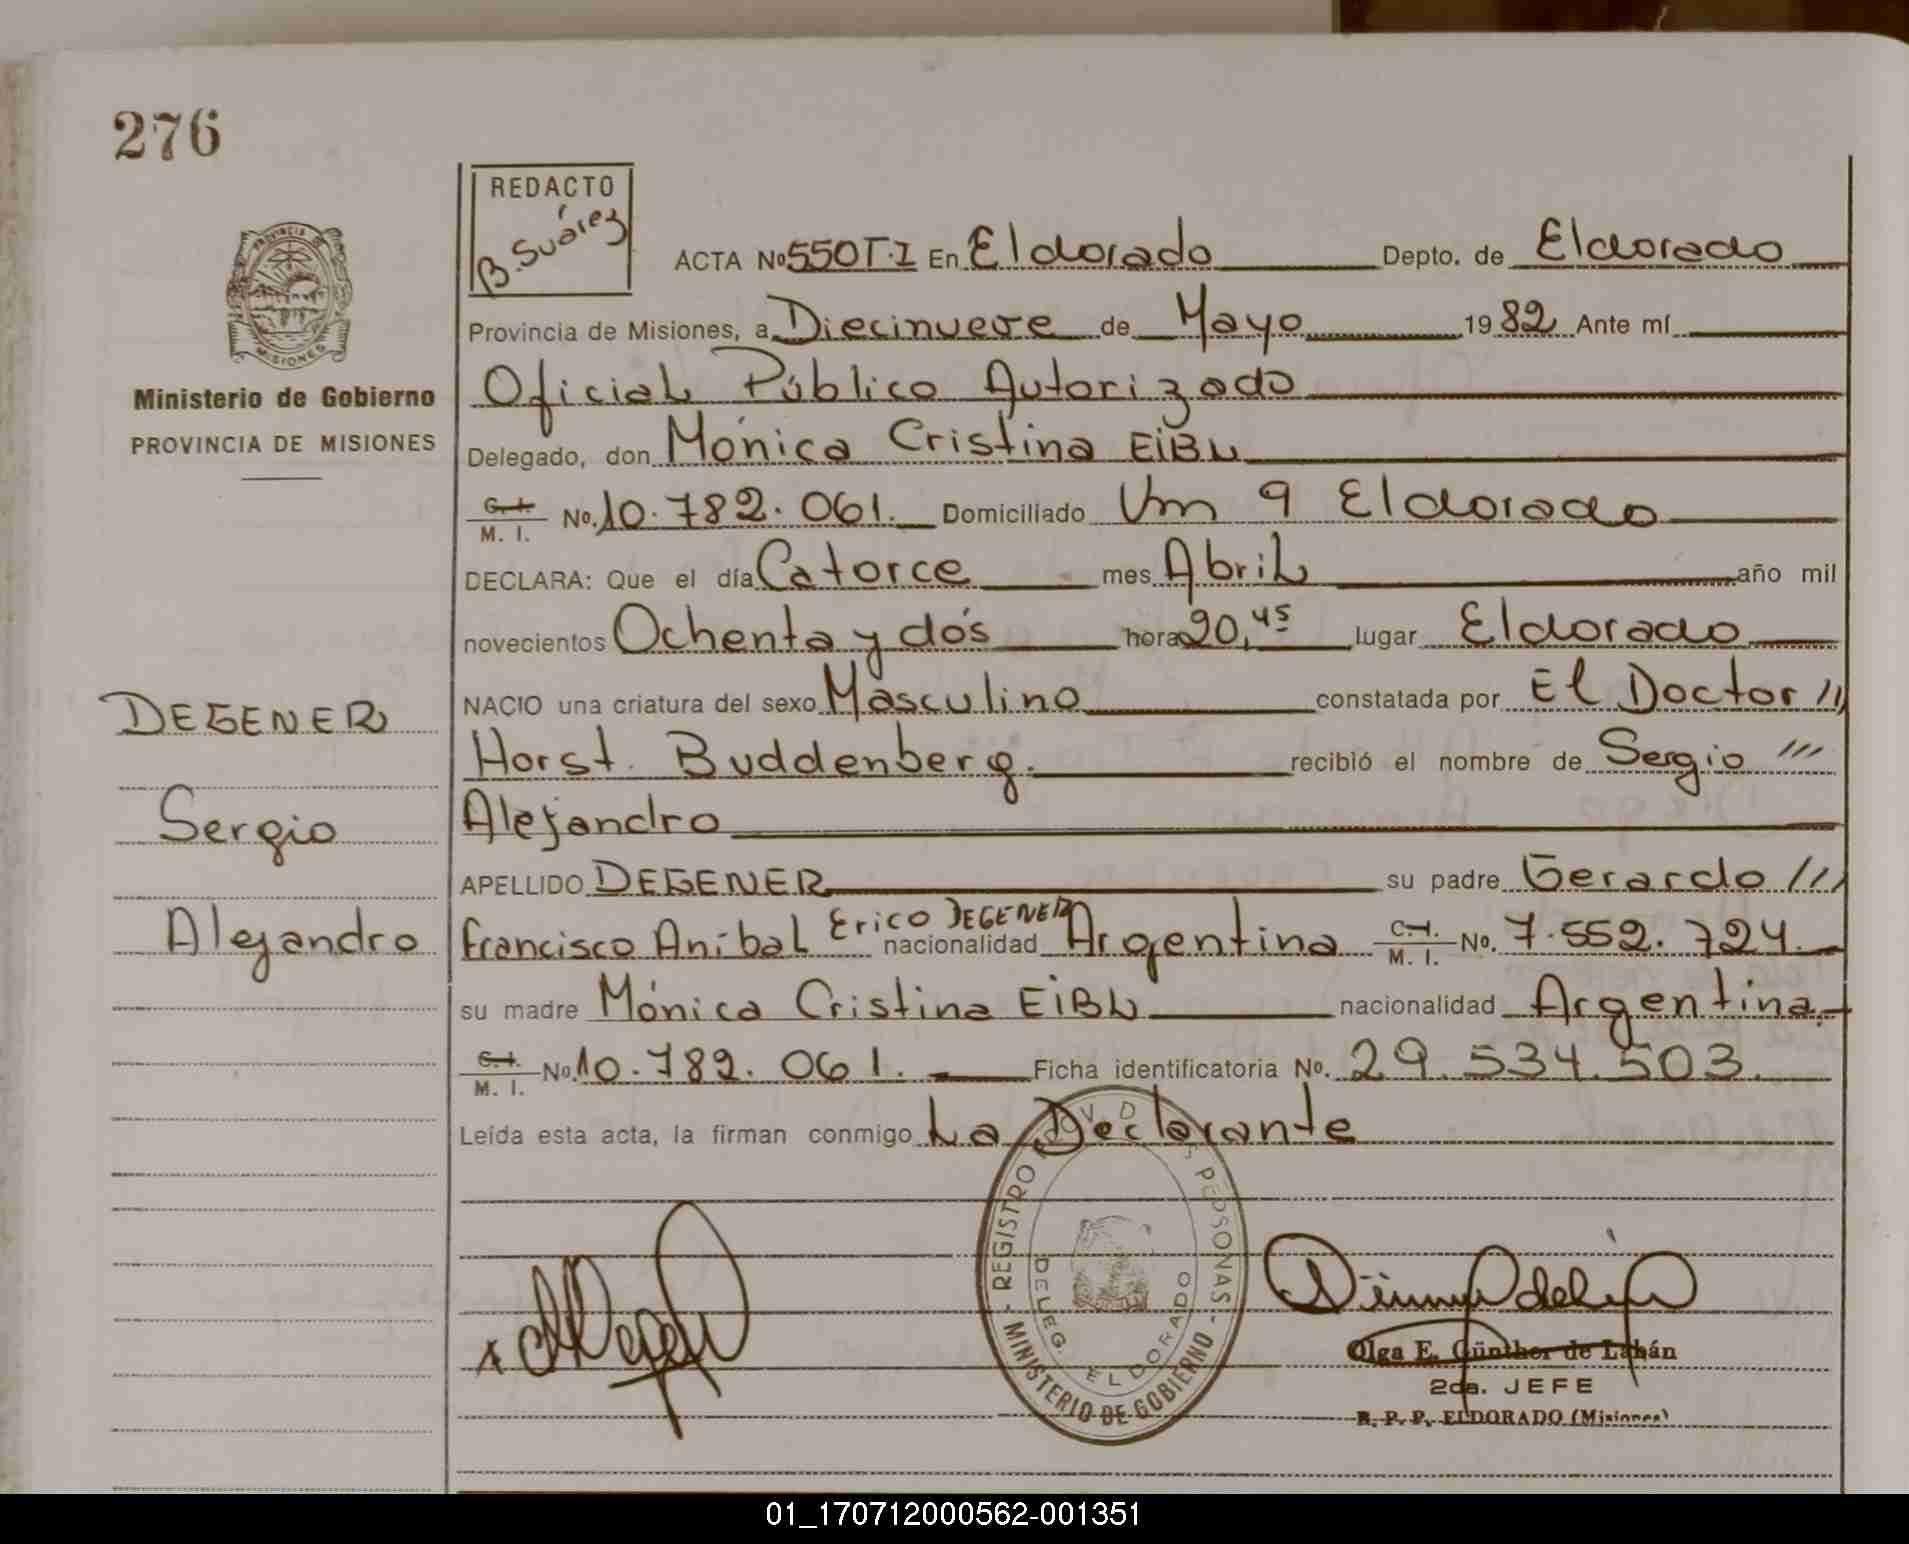 276
REDACTO
B. Suárez
ACTA No 550 T.I En Eldorado Depto. de Eldorado
Provincia de Misiones, a Diecinueve de Mayo 1982 Ante mí
Oficial Público Autorizado
Ministerio de Gobierno
PROVINCIA DE MISIONES
Delegado, don Mónica Cristina EiBL
C. I. M. I. No. 10.782.061. Domiciliado Km 9 Eldorado
DECLARA: Que el día Catorce mes Abril año mil
novecientos Ochenta y dós hora 20,45 lugar Eldorado
NACIO una criatura del sexo Masculino constatada por El Doctor ///
Horst. Buddenberg. recibió el nombre de Sergio ///
Alejandro
DEGENER
Sergio
Alejandro
APELLIDO DEGENER su padre Gerardo ///
Francisco Aníbal Erico DEGENER nacionalidad Argentina C. I. M. I. No. 7.552.724.
su madre Mónica Cristina EiBL nacionalidad Argentina.
C. I. M. I. No. 10.782.061. Ficha identificatoria No. 29.534.503.
Leída esta acta, la firman conmigo La Declarante
REGISTRO PERSONAS
MINISTERIO DE GOBIERNO
DELEG. ELDORADO
Olga E. Günther de Labán
2da. JEFE
R. P. P. ELDORADO (Misiones)
PROVINCIA DE
MISIONES
01_170712000562-001351